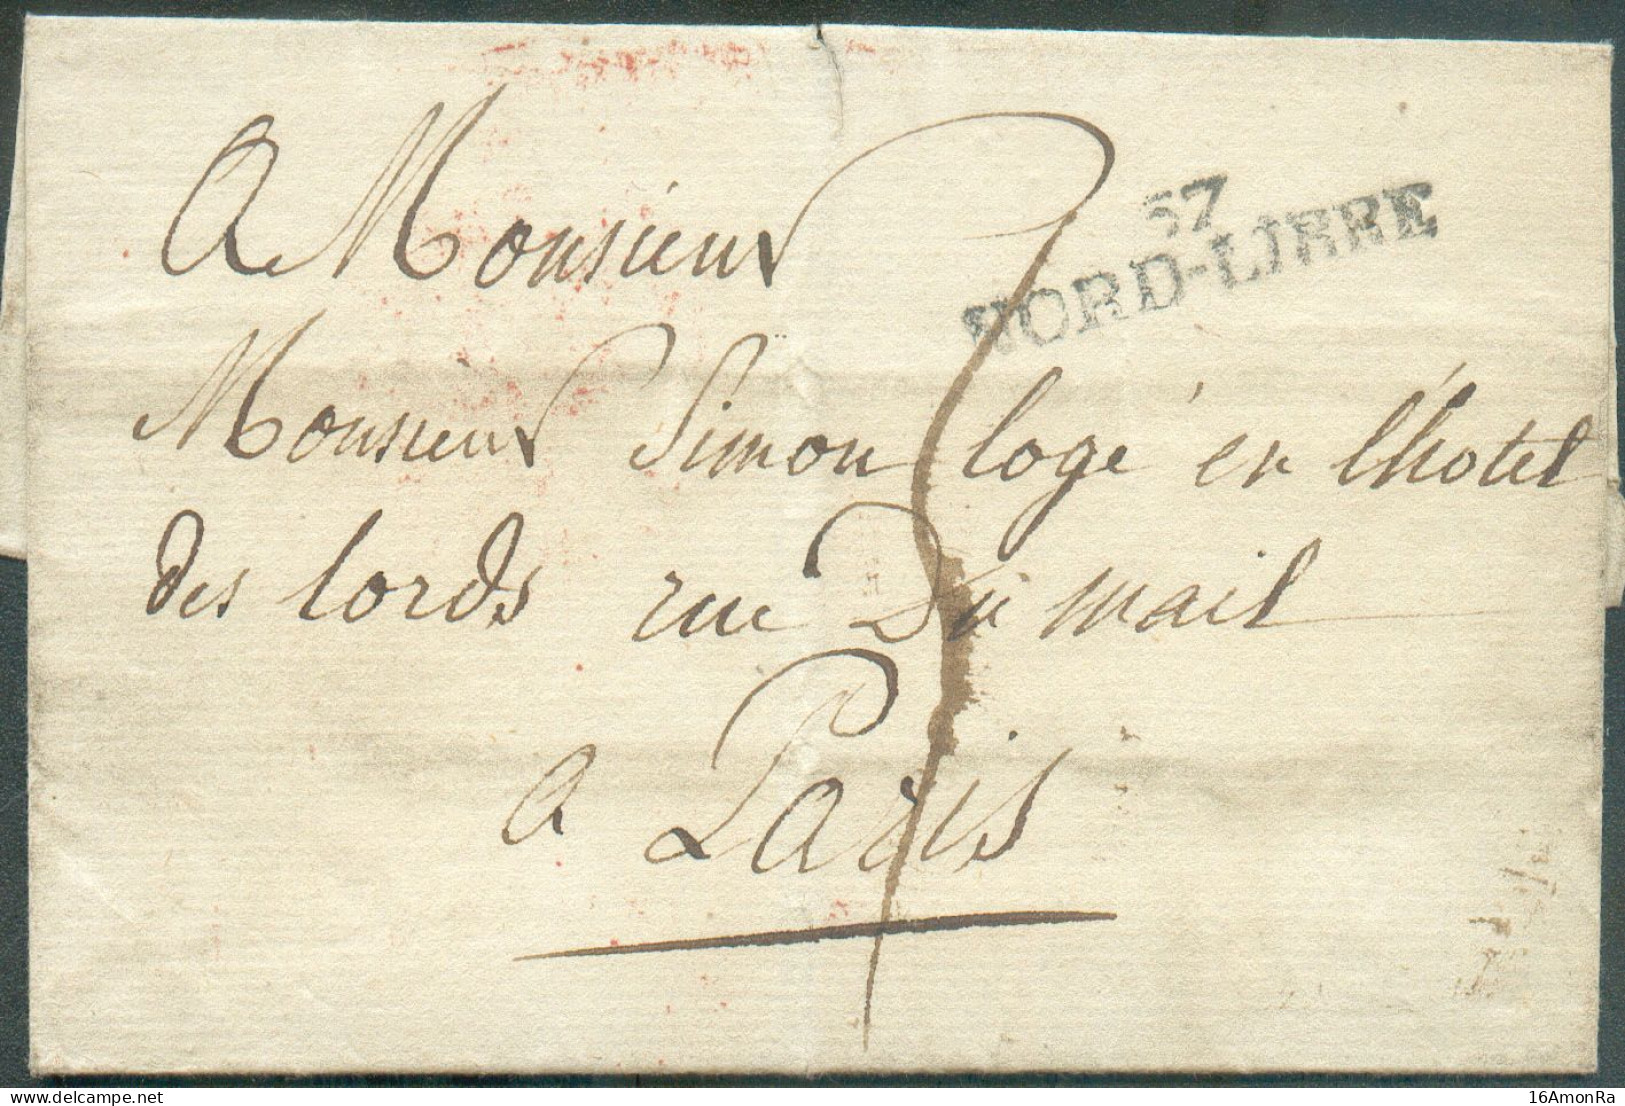 A Monsieur
57
NORD-LIBRE
Monsieur Simon logé en l'hotel
des lords rue Du mail
a Paris
16AmonRa